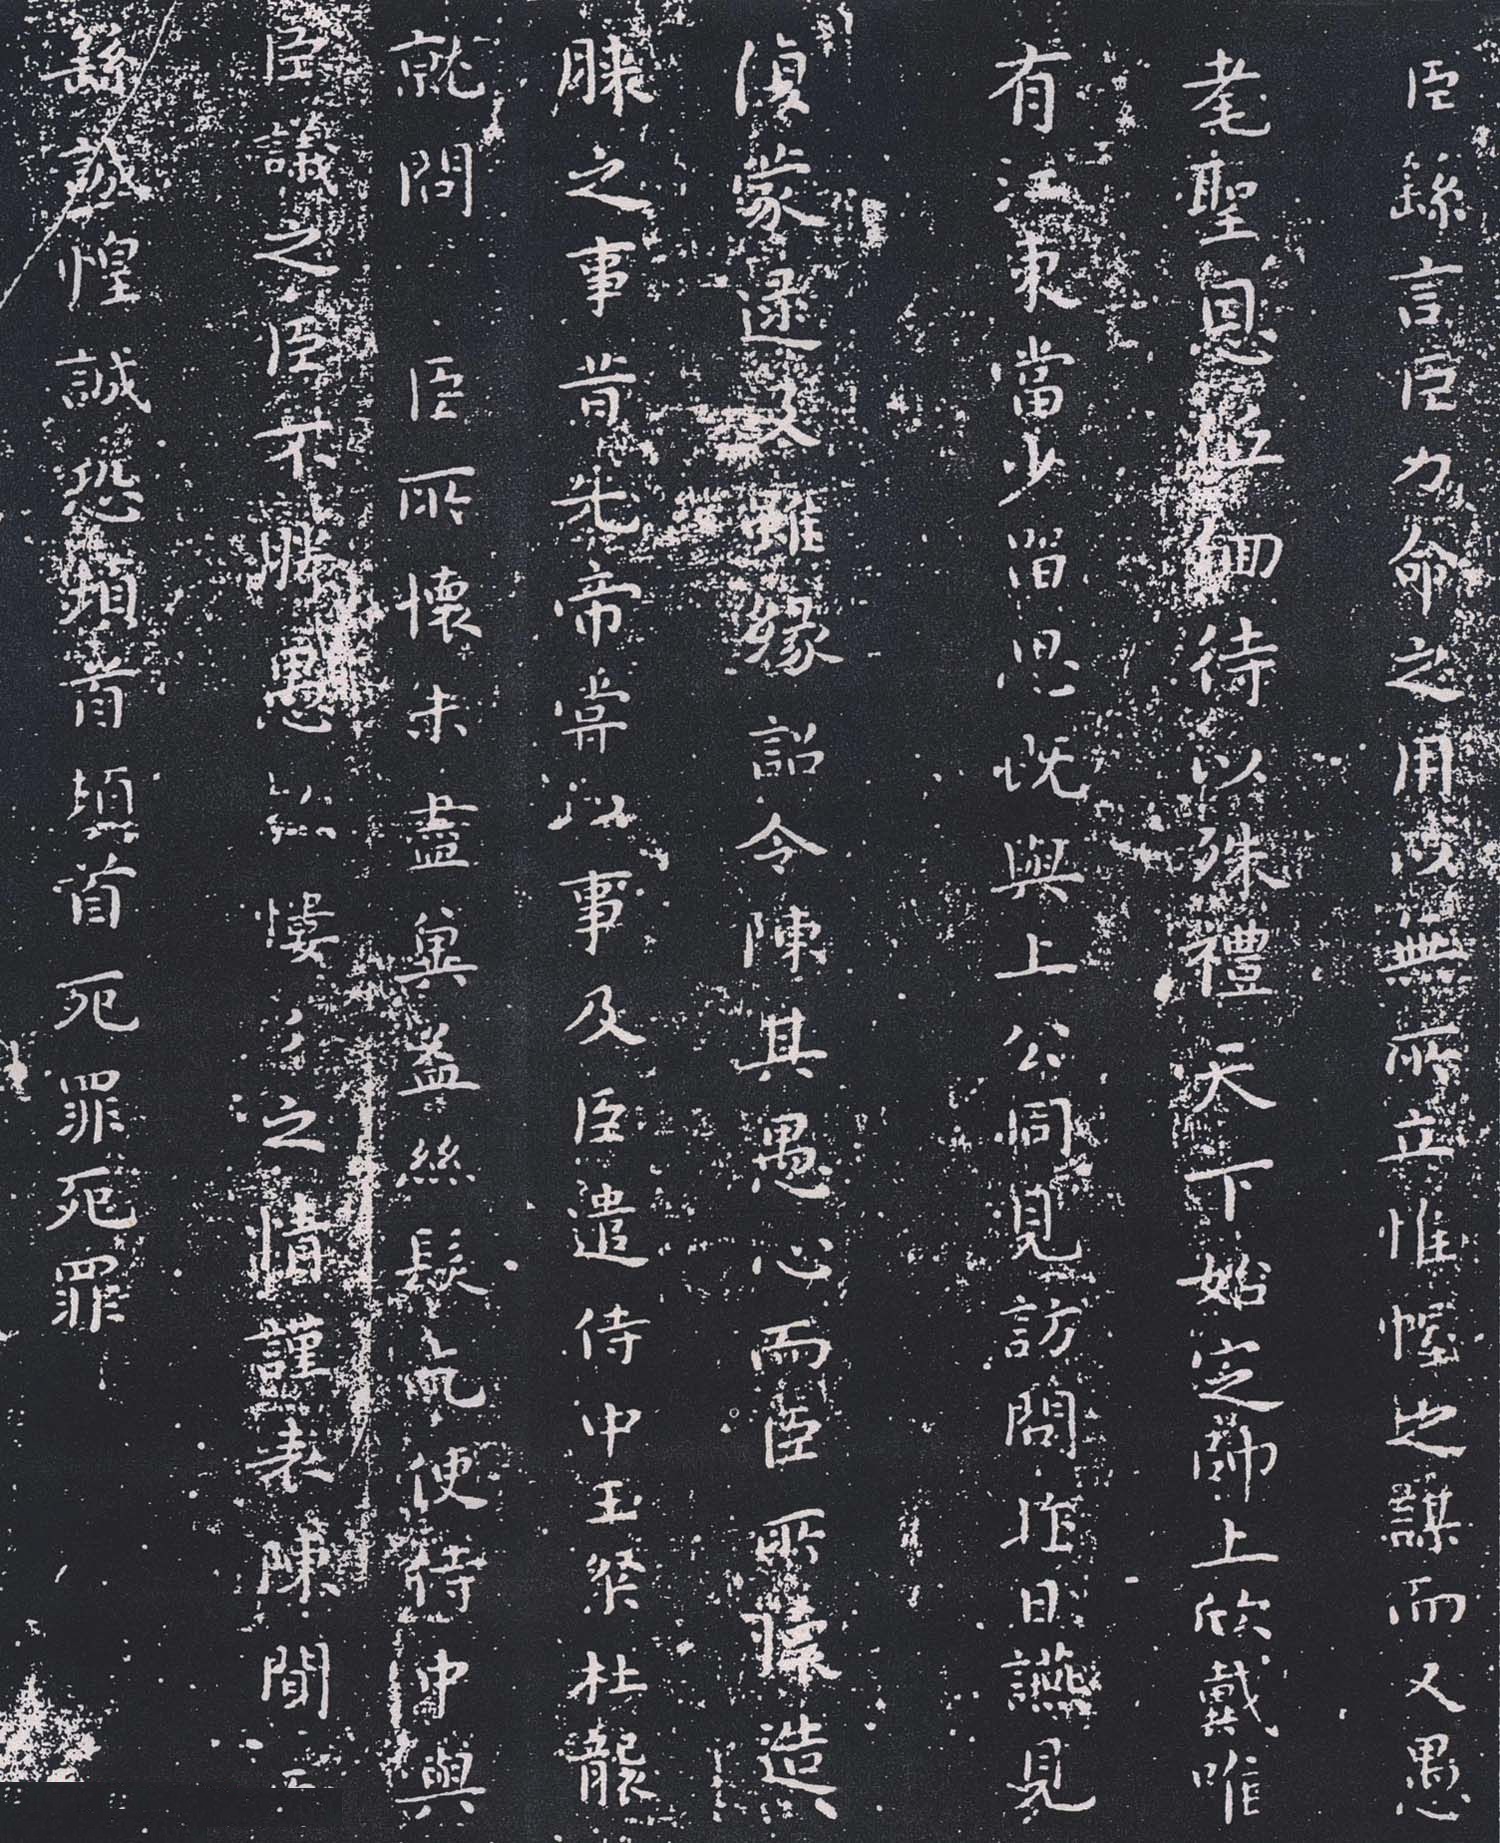 臣繇言臣力命之用以無所立惟幄之謀而又愚
耄聖恩低徊待以殊禮天下始定帥上欣戴唯
有江東當少留思既與上公同見訪問昨日讌見
復蒙逮及雖緣詔令陳其愚心而臣所懷造
膝之事昔先帝嘗以事及臣遣侍中王粲杜襲
就問臣所懷未盡奧益絲髮乞使侍中與
臣議之臣不勝愚慺々之情謹表陳聞
繇誠惶誠恐頓首頓首死罪死罪